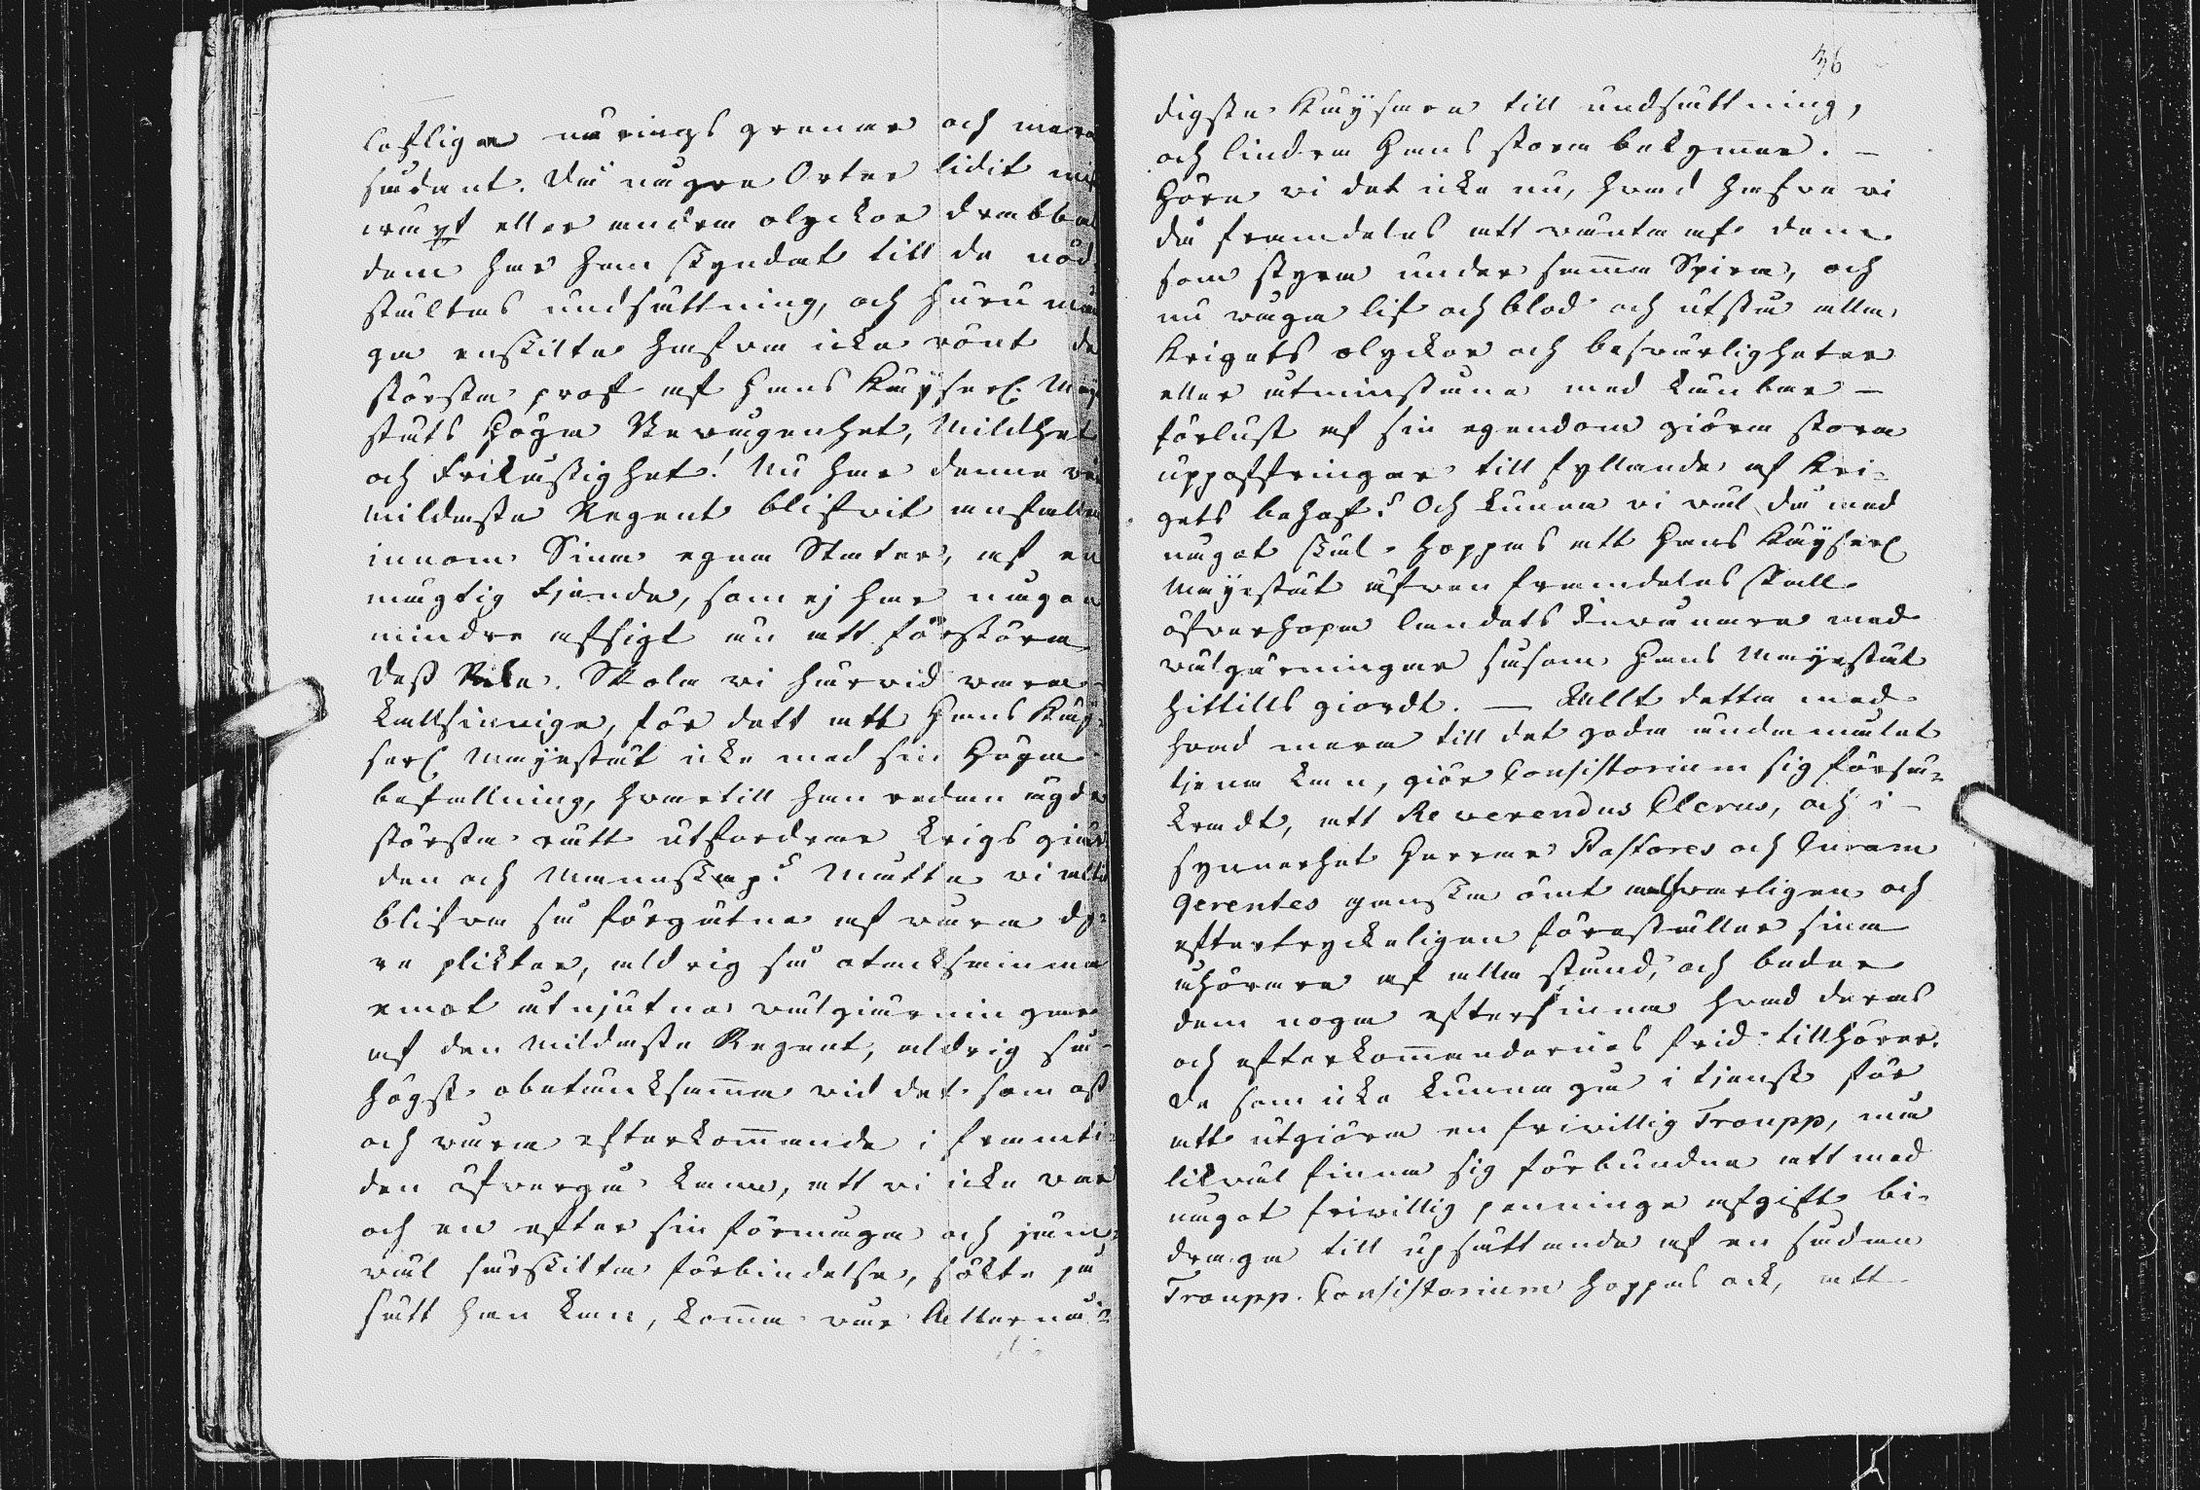 lofliga närings grenar och mera
sådant. Då några Orter lidit miß
wäxt eller andra olyckor drabbat
dem har han skyndat till de nöd-
stältas undsättning, och huru mån
ga enskilta hafva icke rönt de
största prof af Hans Kayserl. Maye
stäts Höga Bewågenhet, Mildhet
och Frikåstighet! Nu har denne vår
mildaste Regent blifvit anfallen
innom Sina egna Stater, af en
mägtig fjende, som ej har någon
mindre afsigt än att förstöra
dess Rike. Skola vi härvid vara
kallsinnige, för dett att Hans Kay-
serl Mayestät icke med sin Höga
befallning, hvartill han redan ägde
största rätt utfordrar krigs gär
den och Manuskap? Måtte vi alldr
blifva så förgätne af våra dy-
ra plikter, aldrig så otacksamma
emot åtnjutna välgiärningar
af den mildaste Regent, aldrig så
högst obetänksamma vid det som oß
och våra efterkommande i framti-
den öfvergå kann, att vi icke var
och en efter sin förmåga och jäm-
väl särskilta förbindelse, sökte på
sätt han kan, komma vår Allernå-
36
digste Kaysare till undsättning,
och lindra Hans stora bekymer. –
Göra vi det icke nu, hvad hafva vi
då framdeles att vänta af dem
som styra under samma Spira, och
nu våga lif och blod och utstå alla
Krigets olyckor och besvärligheter
eller åtminstone med känbar –
förlust af sin egendom giöra stora
uppoffringar till fyllande af Kri-
gets behof? Och kunna vi väl då med
något skäl hoppas att Hans Kayserl
Mayestät äfven framdeles skall
öfverhopa landets Inwånare med
välgärningar såsom Hans Mayestät
hittills giordt. — Allt detta med
hvad mera till det goda ändamålet
tjena kan, giör Consistorium sig försä-
kradt, att Reverendus Clerus, och i –
synnerhet Herrar Pastores och Curam
gerentes ganska ömt alfvarligen och
eftertryckeligen föreställer sina
åhörare af alla stånd, och beder
dem noga eftersinna hvad deras
och efterkommandernes frid tillhörer.
De som icke kunna gå i tjenst för
att utgiöra en friwillig Troupp, må
likväl finna sig förbundna att med
något friwillig penninge afgift bi-
draga till upsättande af en sådan
Troupp. Consistorium hoppas ock, att